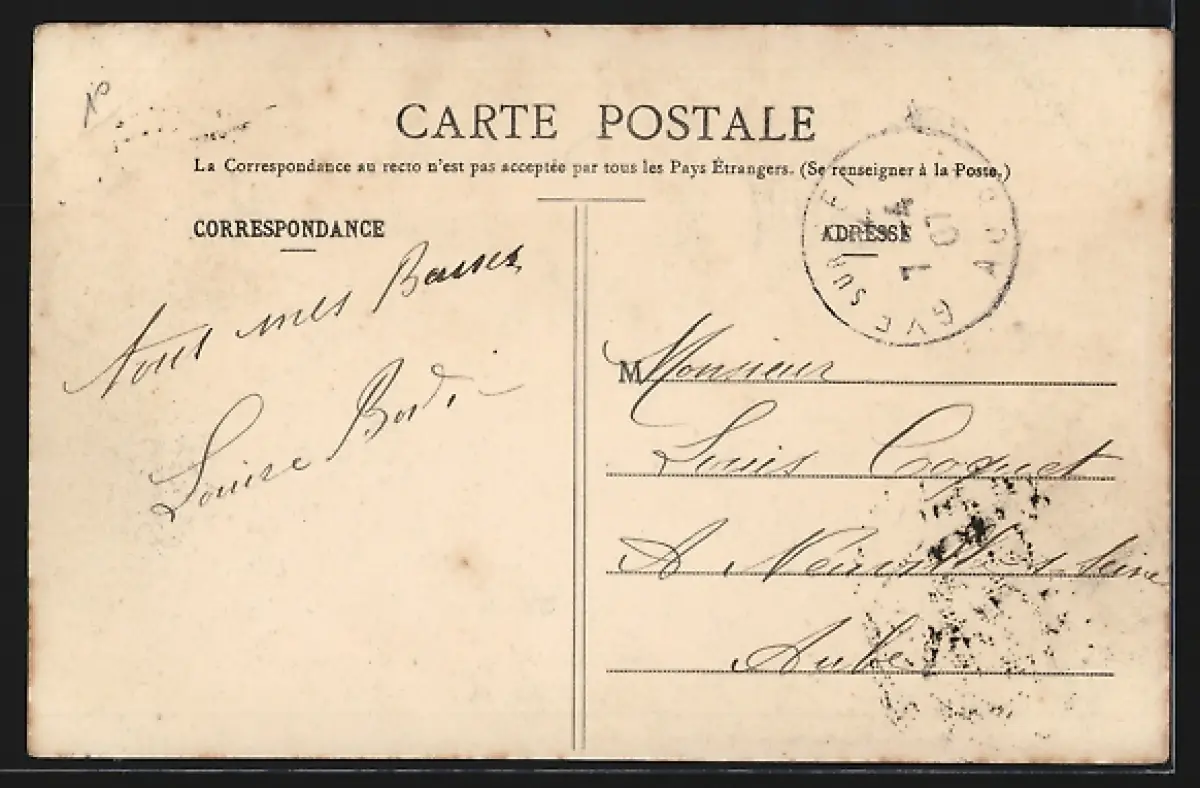 CARTE POSTALE
La Correspondance au recto n'est pas acceptée par tous les Pays Étrangers. (Se renseigner à la Poste.)
CORRESPONDANCE
ADRESSE
Tous mes Baisers
Louise
M Monsieur
Louis Coquet
A Neuville s Seine
Aube
GVE SUR
7 07